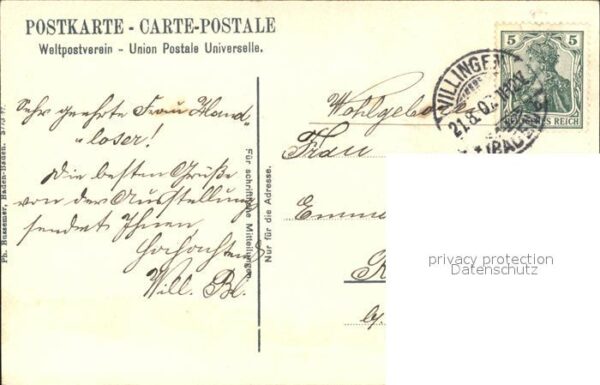 POSTKARTE - CARTE-POSTALE
Weltpostverein - Union Postale Universelle.
Sehr geehrte Frau Hand-
loser!
Die besten Grüße
von der Ausstellung
sendet Ihnen
Hochachtend
Will. Bl.
Für schriftliche Mitteilungen
Nur für die Adresse.
Ph. Bussemer, Baden-Baden.
Wohlgeboren
Frau
Emme
VILLINGEN
21.8.07
(BADEN)
5 5
DEUTSCHES REICH
privacy protection
Datenschutz